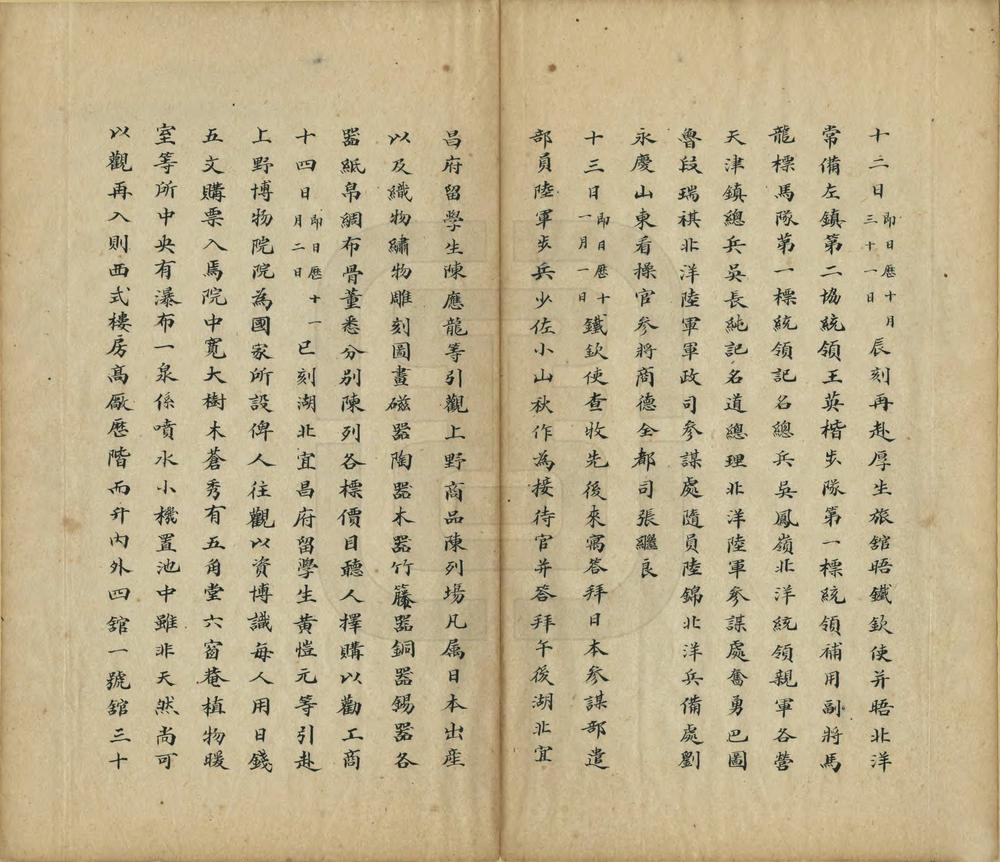 十二日即日歷十月三十一日辰刻再赴厚生旅舘晤鐵欽使并晤北洋
常備左鎮第二協統領王英楷步隊第一標統領補用副將馬
龍標馬隊第一標統領記名總兵吳鳳嶺北洋統領親軍各營
天津鎮總兵吳長純記名道總理北洋陸軍參謀處奮勇巴圖
魯段瑞祺北洋陸軍軍政司參謀處隨員陸錦北洋兵備處劉
永慶山東看操官參將商德全都司張繼良
十三日即日歷十一月一日鐵欽使查收先後來寓答拜日本參謀部遣
部員陸軍步兵少佐小山秋作為接待官并答拜午後湖北宜
昌府留學生陳應龍等引觀上野商品陳列場凡属日本出産
以及織物繡物雕刻圖畫磁器陶器木器竹籐器銅器錫器各
器紙帛綢布骨董悉分別陳列各標價目聽人擇購以勸工商
十四日即日歷十一月二日巳刻湖北宜昌府留學生黃愷元等引赴
上野博物院院為國家所設俾人往觀以資博識每人用日錢
五文購票入焉院中寬大樹木蒼秀有五角堂六窗菴植物暖
室等所中央有瀑布一泉係噴水小機置池中雖非天然尚可
以觀再入則西式樓房高厰歷階而升內外四舘一號舘三十